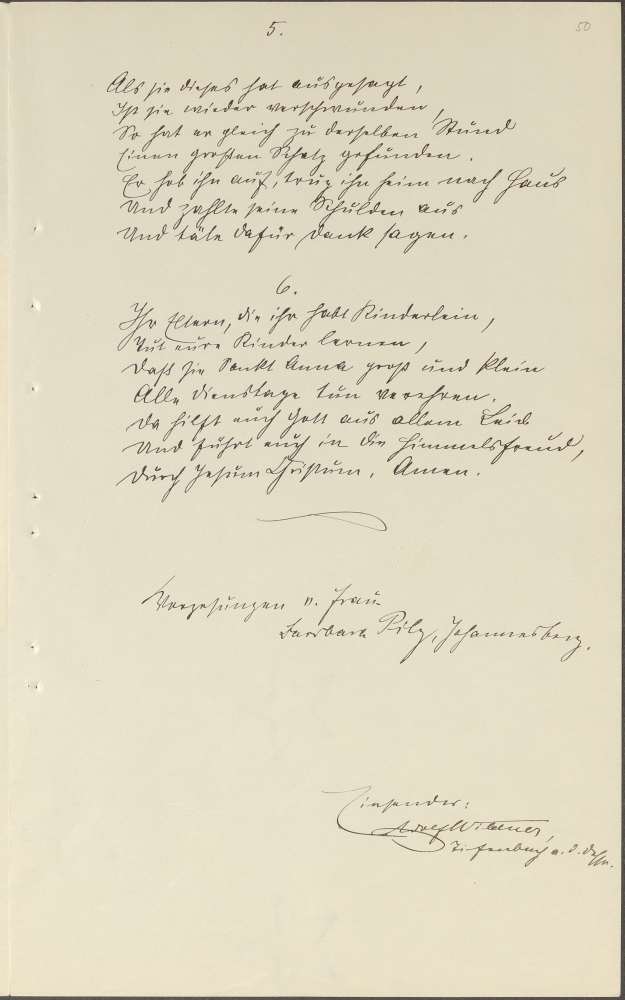 5.
50
Als sie dieses hat ausgesagt,
Ist sie wieder verschwunden,
So hat er gleich zu derselben Stund
Einen großen Schatz gefunden.
Er hob ihn auf, trug ihn heim nach Haus
Und zahlte seine Schulden aus
Und täte dafür Dank sagen.
6.
Ihr Eltern, die ihr habt Kinderlein,
Tut eure Kinder lernen,
Daß sie Sankt Anna groß und klein
Alle Dienstage tun verehren.
Da hilft euch Gott aus allem Leid
Und führt euch in die Himmelsfreud,
Durch Jesum Christum. Amen.
Vorgesungen v. Frau
Barbara Pilz, Johannesberg.
Einsender:
Adolf Wildner,
Tiefenbach a. d. Desse.